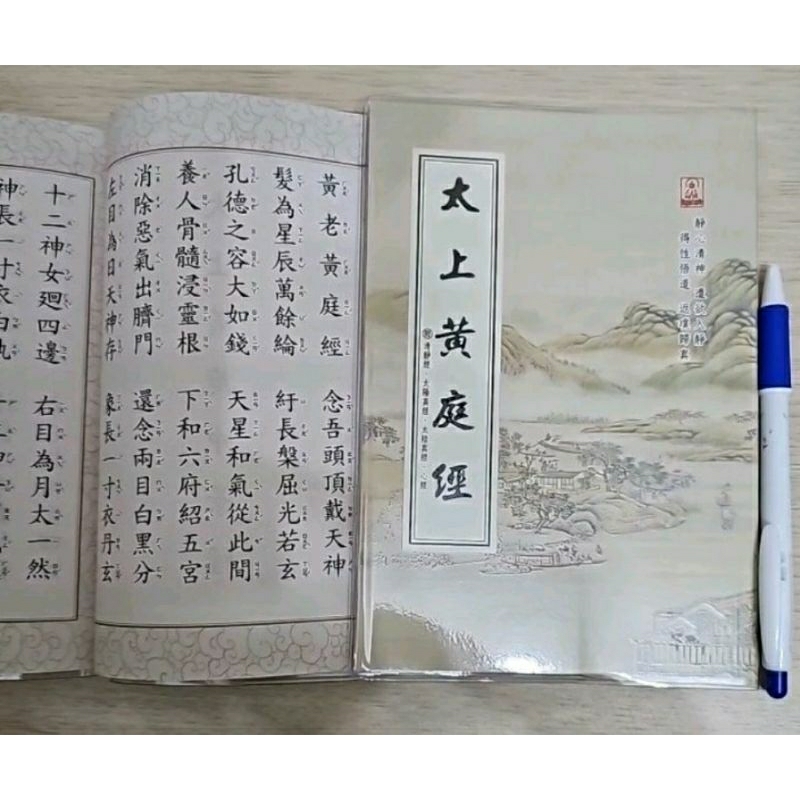 靜心清神 遣欲入靜
得性悟道 返璞歸真
太上黃庭經
附 清靜經・太陽真經・太陰真經・心經
黃老黃庭經 念吾頭頂戴天神
髮為星辰萬餘綸 紆長槃屈光若玄
孔德之容大如錢 天星和氣從此間
養人骨髓浸靈根 下和六府紹五宮
消除惡氣出臍門 還念兩目白黑分
左目為日天神存 象長一寸衣丹玄
十二神女廻四邊 右目為月太一然
神長一寸衣白